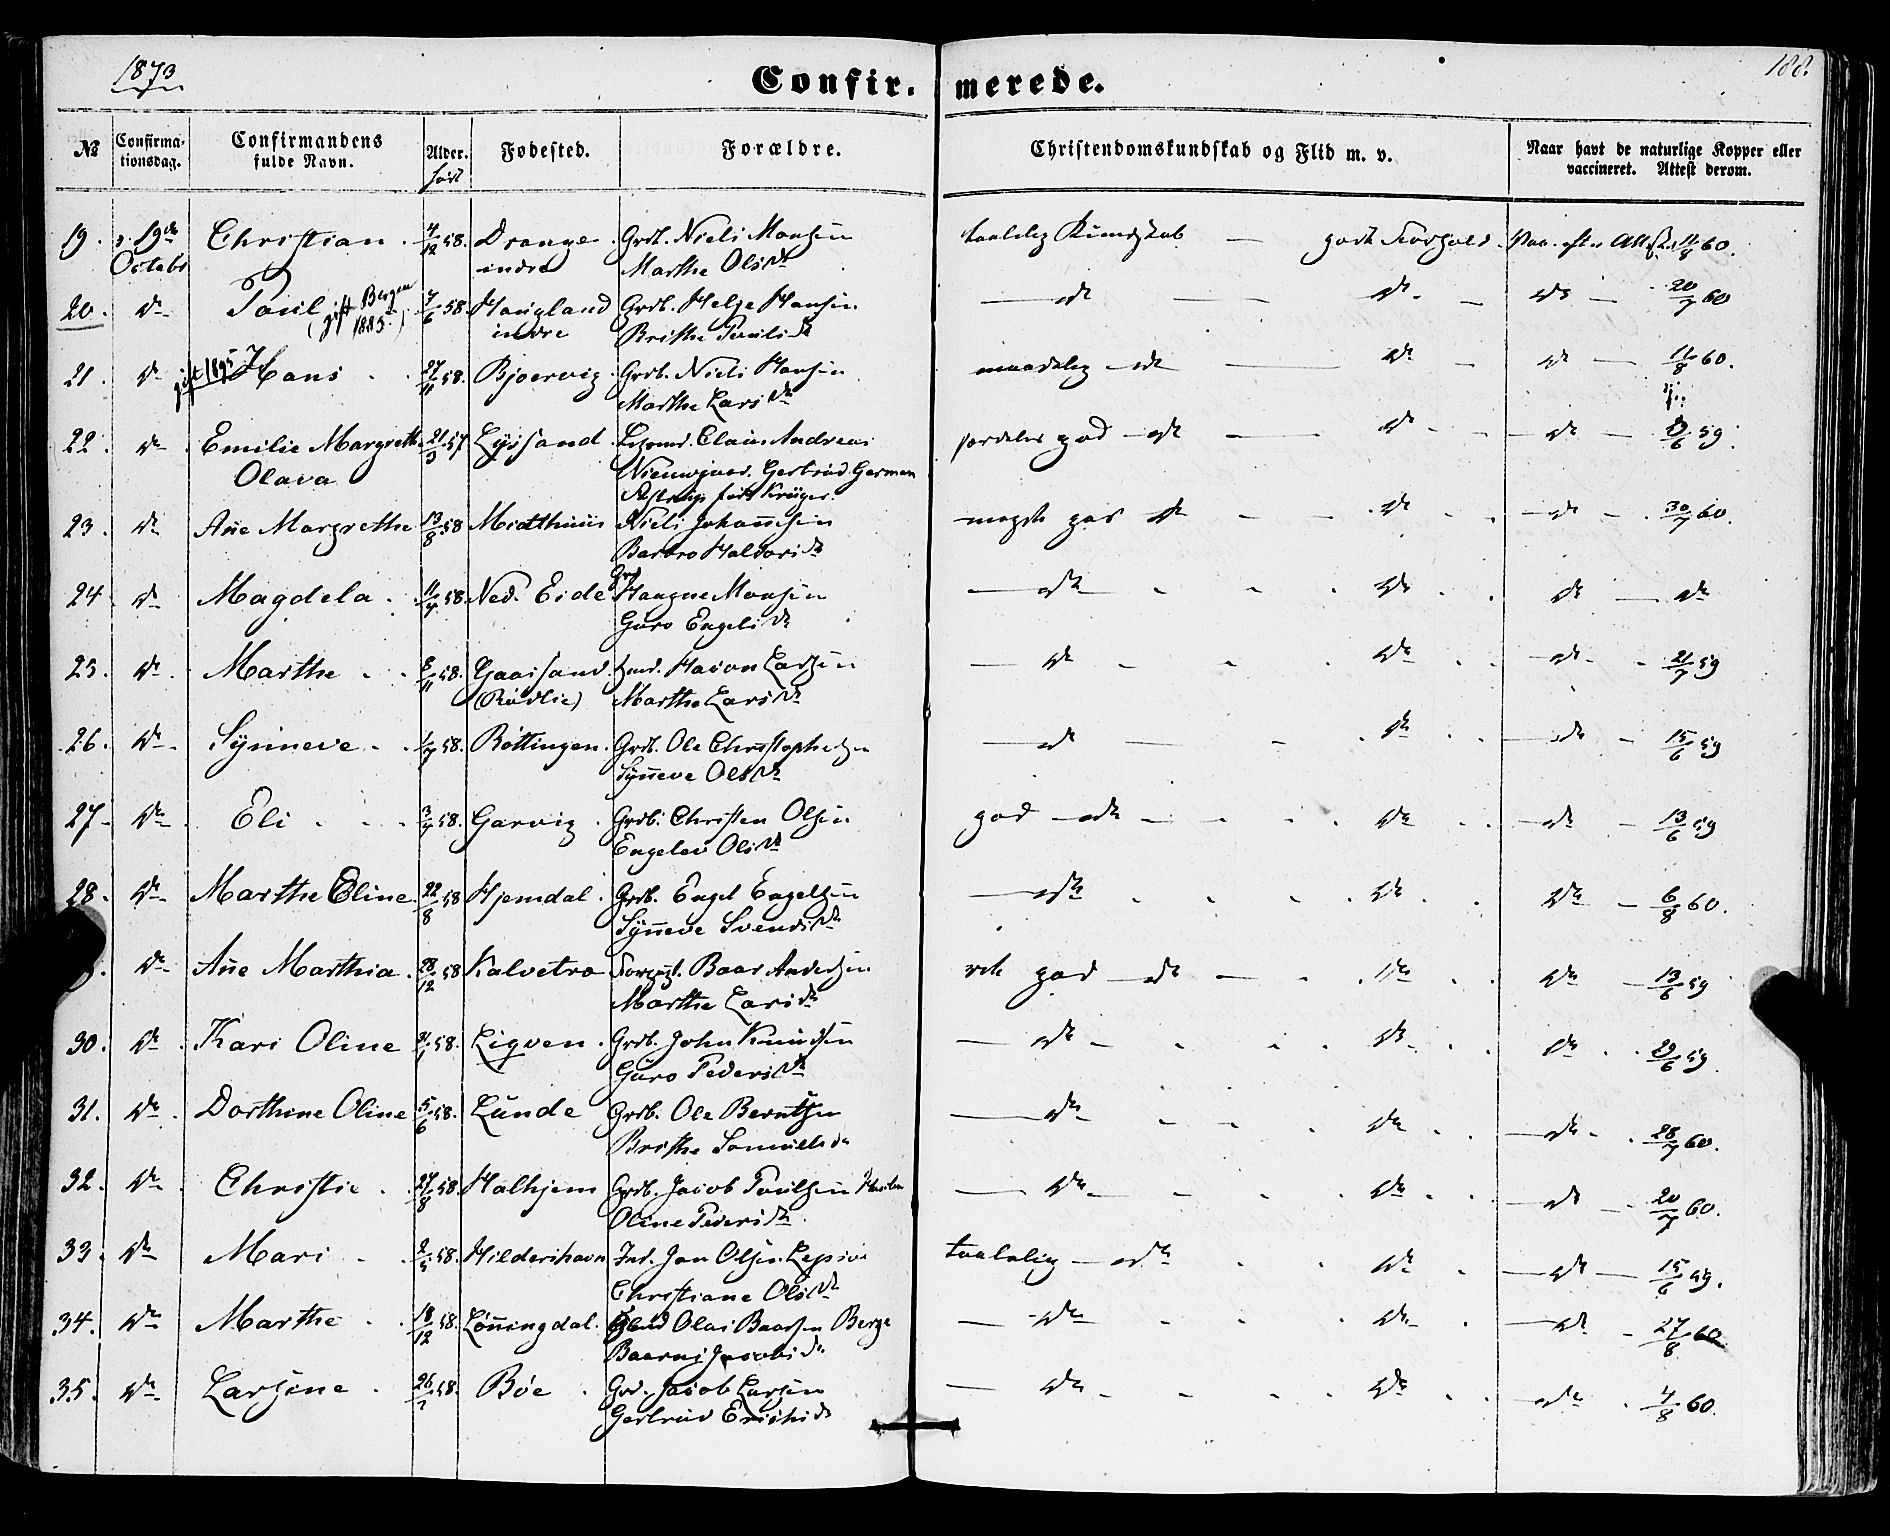 1873
188.
Confir. merede.
№ Confirma- tionsdag. Confirmandens fulde Navn. Alder. født Fødested. Forældre. Christendomskundskab og Flid m. v. Naar havt de naturlige Kopper eller vaccineret. Attest derom.
19. 19de Christian 4/12 58. Drange Grdb. Niels Monsen taalelig Kundskab — godt Forhold. Vac. efter Attest 11/8 60.
Octobr indre Marthe Olsdr
20. do Poul (gift Bergen 1885.) 4/6 58. Haugland Grdb. Helge Hansen — do — do — do — 20/7 60
indre Brithe Poulsdr
21. do gift 1895 Hans 27/11 58. Bjoervig Grdb. Niels Hansen maadelig do — do — do — 11/8 60.
Marthe Larsdr
22. do Emilie Margrethe 21/3 57 Lyssand Claus Andreas særdeles god do — do — do — 8/6 59.
Olava Gertrud German
født Krüger.
23. do Ane Margrethe 13/8 58 Niels Johannesen meget god do — do — do — 30/7 60.
Barbro Haldorsdr
24. do Magdela 11/4 58. Ned. Eide Grd Haagne Monsen — do do do — do
Guro Engelsdr
25. do Marthe 8/11 58. Gaassand Hmd. Hacon Larsen — do do do 21/7 59
(Rødlie) Marthe Larsdr
26. do Synneve 1/7 58. Røttingen. Grdb. Ole Christophersen — do — do — do — 15/6 59
Synneve Olsdr
27. do Eli 3/7 58. Garvig Grdb. Christen Olsen god do do do — 13/6 59
Engelev Olsdr
28. do Marthe Eline 22/8 58 Hjemdal Grdb. Engel Engelsen — do do do — 6/8 60.
Synneve Svendsdr
do Ane Marthia 28/12 58 Kalvetræ Baar Andersen god do — do do — 13/6 59
Marthe Larsdr
30. do Kari Oline 58. Ligven Grdb. John Knudsen — do do do 29/6 59
Guro Pedersdr
31. do Dorthine Oline 5/6 58. Lunde Grdb. Ole Berntsen — do do — do 28/7 60.
Brithe Samuelsdr
32. do Christie 27/8 58. Halhjem Grdb. Jacob Poulsen — do do — do — 20/7 60.
Oline Pedersdr
33. do Mari 2/5 58. Hildershavn Ind. Jan Olsen Lepsøe taalelig do do — do — 15/6 59.
Christiane Olsdr
34. do Marthe 18/12 58. Lønningdal. Olai Baarsen Berge — do do — do — 27/8 60
Jacobsdr
35. do Larsine 26/7 58. Bøe Grd. Jacob Larsen — do do do 4/8 60.
Gertrud Erichsdr